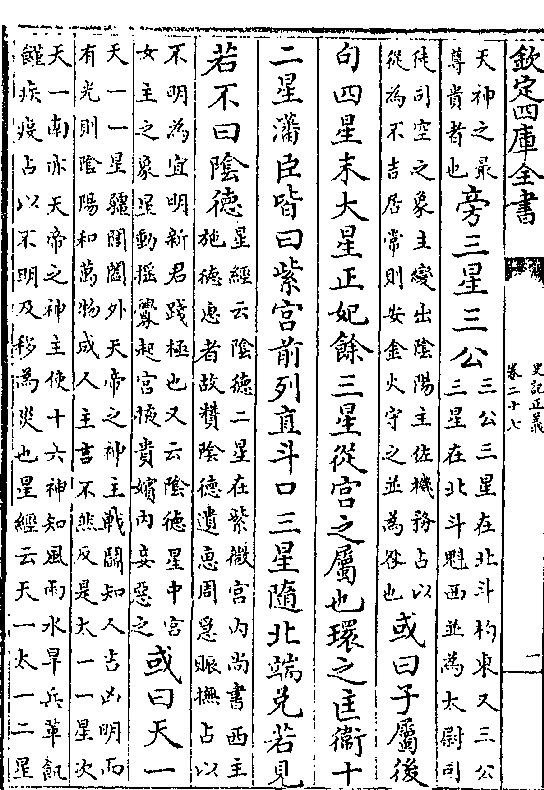 欽定四庫全書
史記正義
卷二十七
一
天神之最
尊貴者也
旁三星三公
三公三星在北斗杓東又三公
三星在北斗魁西並為太尉司
徒司空之象主變出陰陽主佐機務占以
徙為不吉居常則安金火守之並為咎也
或曰子屬後
句四星末大星正妃餘三星從宮之屬也環之匡衛十
二星藩臣皆曰紫宮前列直斗口三星隨北端兌若見
若不曰陰德
星經云陰德二星在紫微宮内尚書西主
施德惠者故贊陰德遺惠周急賑撫占以
不明為宜明新君踐極也又云陰德星中宮
女主之象星動搖釁起宮掖貴嬪内妾惡之
或曰天一
天一一星疆閶闔外天帝之神主戰鬬知人吉凶明而
有光則陰陽和萬物成人主吉不然反是太一一星次
天一南亦天帝之神主使十六神知風雨水旱兵革飢
饉疾疫占以不明及移為災也星經云天一太一二星